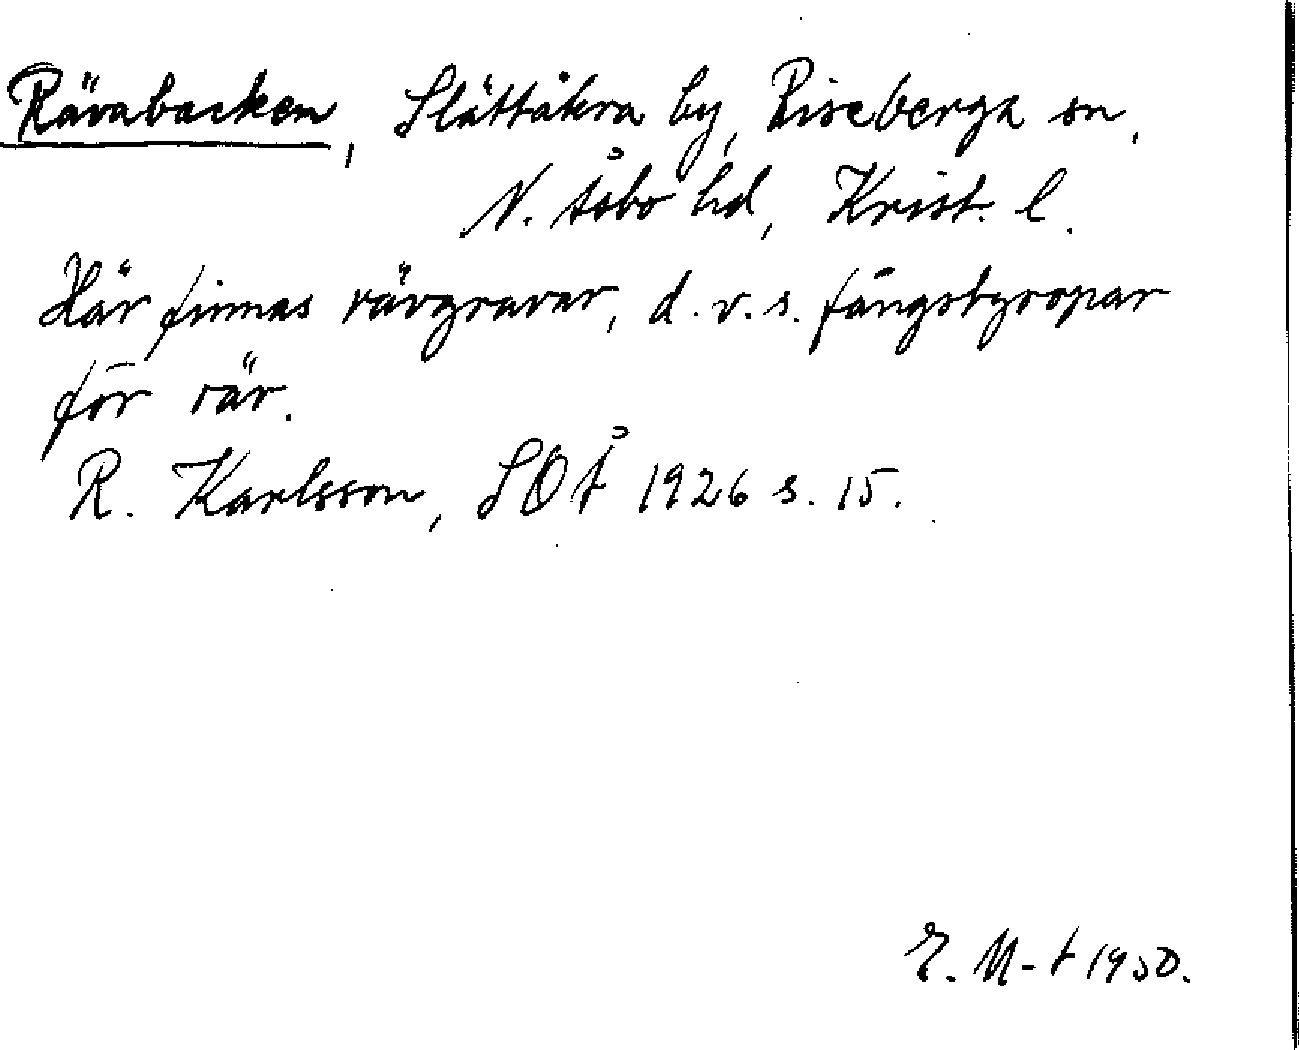 Rävabacken, Slättåkra by, Riseberga sn,
N. Åsbo hd, Krist. l.
Här finnas rävgravar, d.v.s. fångstgropar
för räv.
R. Karlsson, SOÅ 1926 s. 15.
E. M-t 1950.